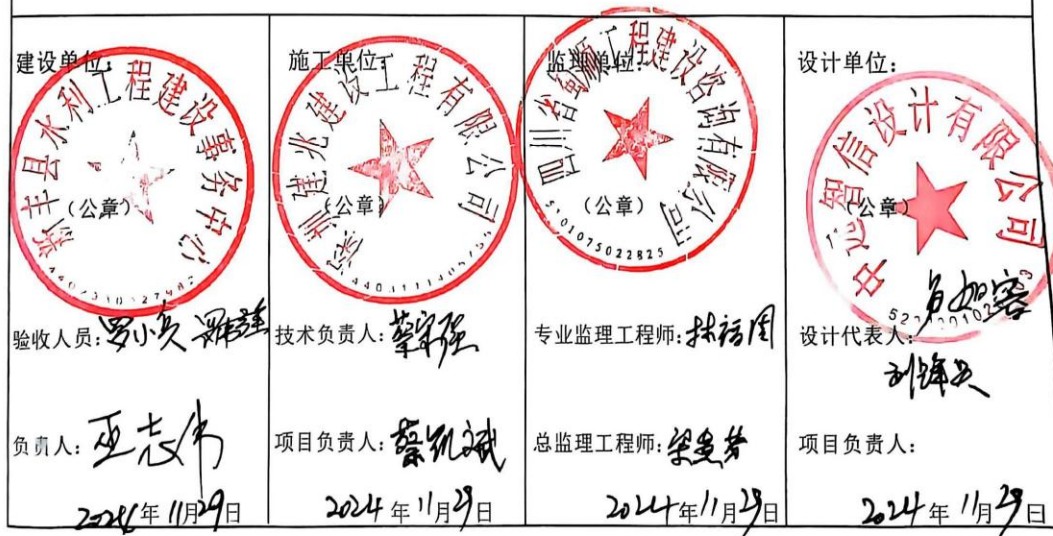 建设单位：
新丰县水利工程建设事务中心
（公章）
验收人员：罗小兵
负责人：巫志伟
2024年11月29日
施工单位：
深圳建兆建设工程有限公司
（公章）
技术负责人：蔡
项目负责人：蔡凯斌
2024年11月29日
监理单位：
四川省 顺工程建设咨询有限公司
（公章）
5101075022825
专业监理工程师：林福周
总监理工程师：梁
2024年11月29日
设计单位：
中 智信设计有限公司
（公章）
设计代表人：
刘锋
项目负责人：
2024年11月29日